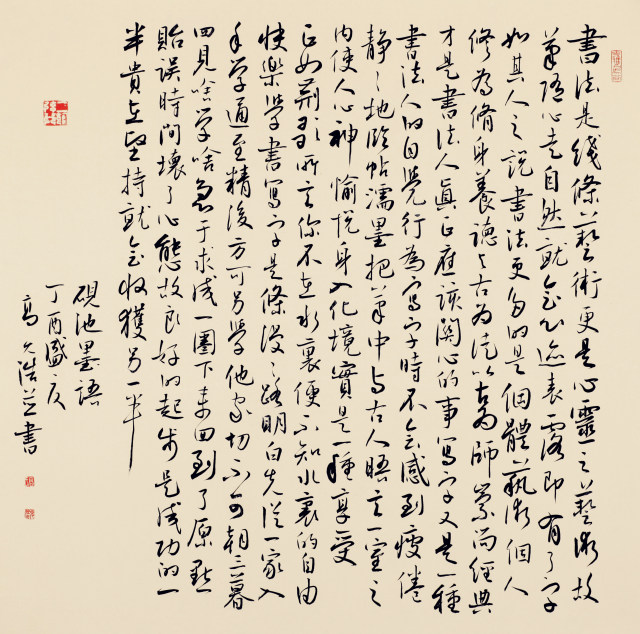 書法是綫條藝術更是心靈之藝術故
筆隨心走自然就會心迹表露即有了字
如其人之說書法更多的是個體藝術個人
修為脩身養德与古為徒以古為師崇尚經典
才是書法人真正應該關心的事寫字又是一種
書法人的自覺行為寫字時不會感到疲倦
靜静地臨帖濡墨把筆中与古人晤言一室之
内使人心神愉悅身入化境實是一種享受
正如荆浩所言你不在水裏便不知水裏的自由
快樂學書寫字是條漫漫路明白先從一家入
手學通至精後方可另學他家切不可朝三暮
四見啥學啥急于求成一圈下来回到了原點
貽誤時間壞了心態故良好的起步是成功的一
半貴在堅持就會收獲另一半
硯池墨語
丁酉盛夏
高久浩並書